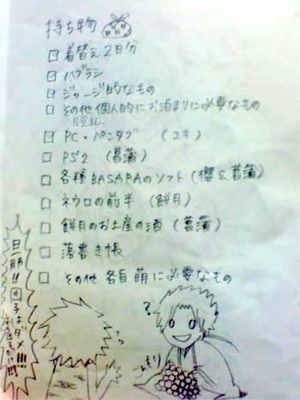 持ち物
□ 着替え2日分
□ ハブラシ
□ ジャージ的なもの
□ その他個人的にお泊まりに必要なもの
□ PC・ペンタブ (ユキ)
□ PS2 (菖蒲)
□ 各種BASARAのソフト(櫻&菖蒲)
□ ネウロの前半 (餅月)
□ 餅月のお土産の酒 (菖蒲)
□ 落書き帳
□ その他 各自萌に必要なもの
旦那!!団子はダメ!!!!
?
もり